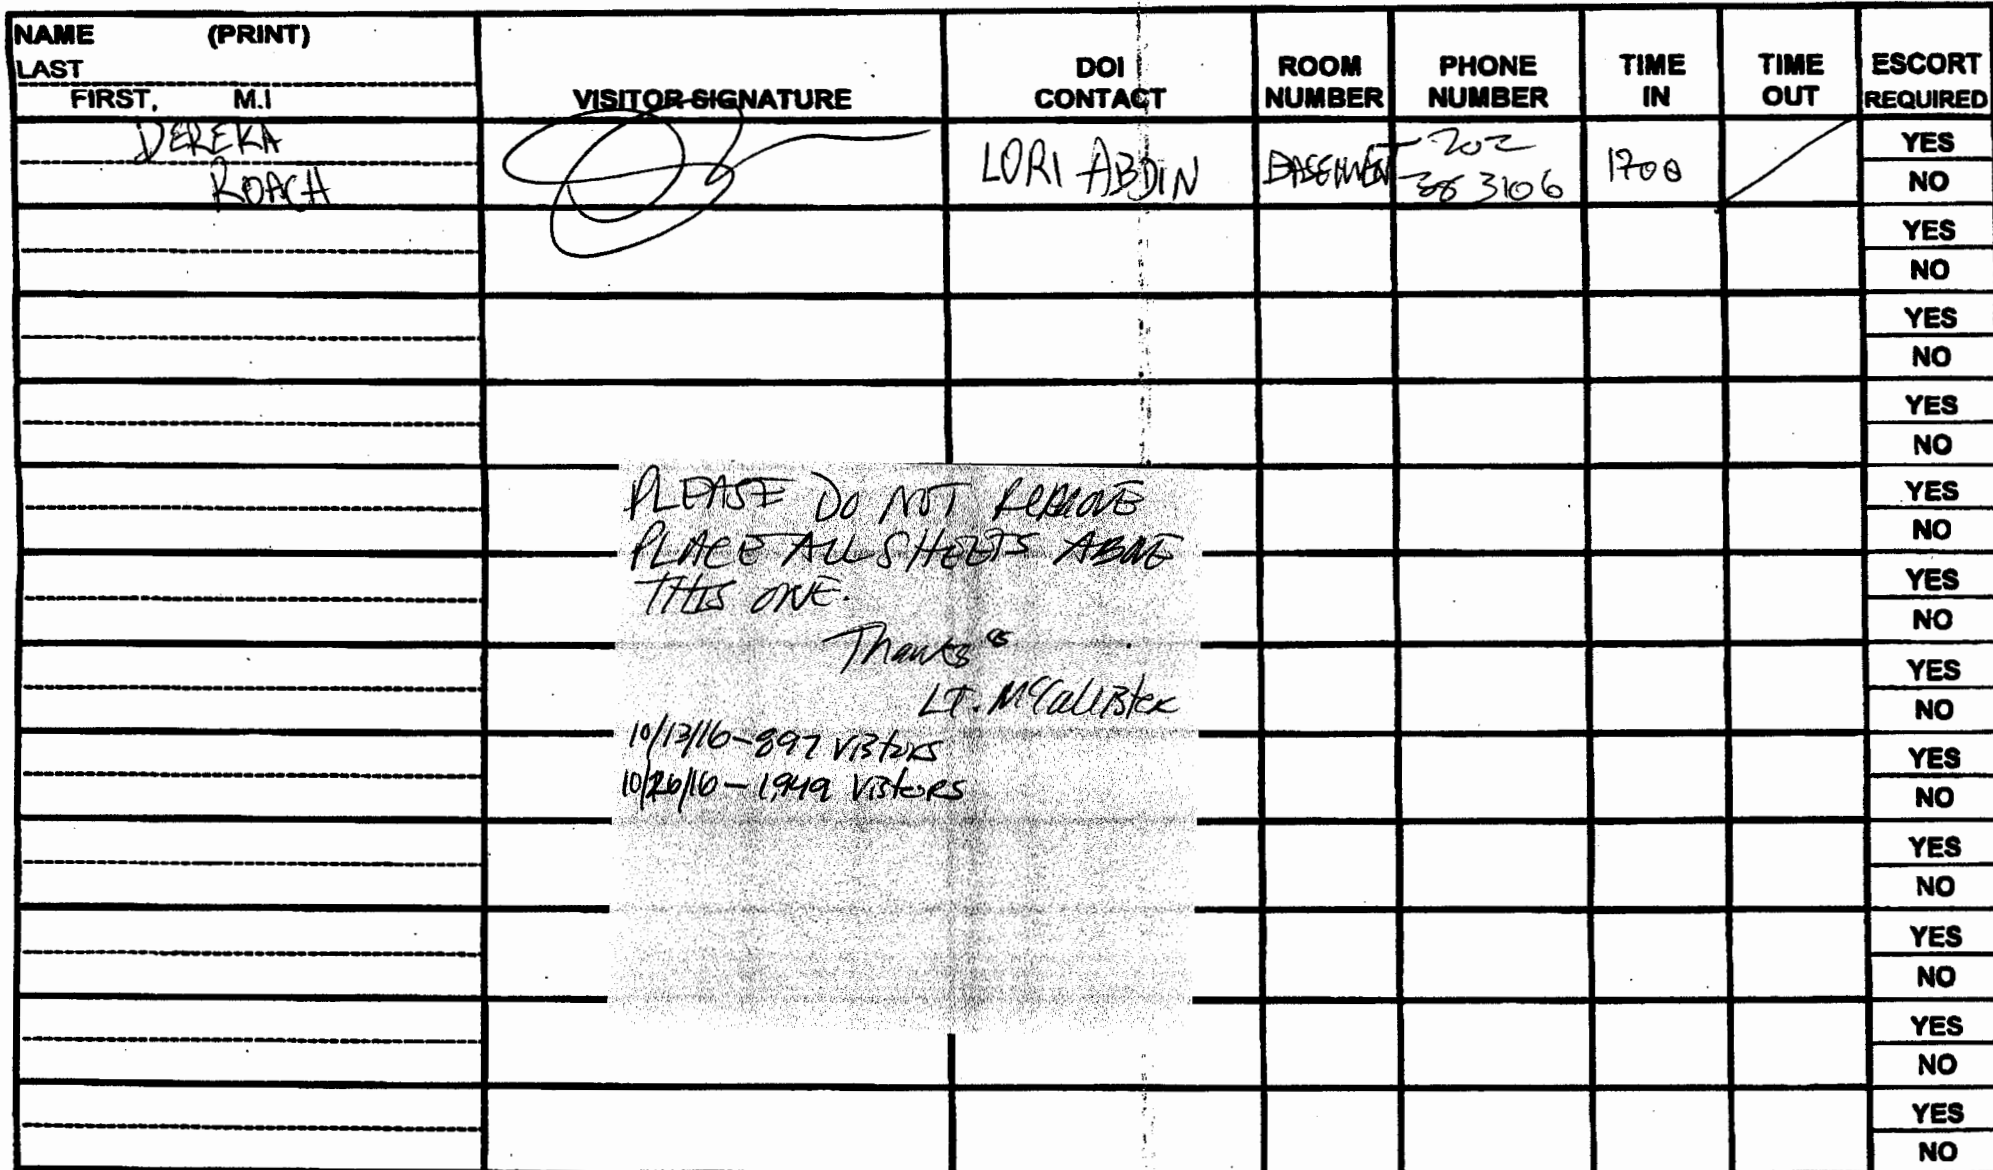 NAME (PRINT)
LAST
FIRST, M.I
VISITOR SIGNATURE
DOI CONTACT
ROOM NUMBER
PHONE NUMBER
TIME IN
TIME OUT
ESCORT REQUIRED
DEREKA
ROACH
LORI ABDIN
BASEMENT
202
3106
1700
YES
NO
YES
NO
YES
NO
YES
NO
YES
NO
YES
NO
YES
NO
YES
NO
YES
NO
YES
NO
YES
NO
YES
NO
PLEASE DO NOT REMOVE
PLACE ALL SHEETS ABOVE
THIS ONE.
Thanks
LT. McCallister
10/13/16-897 visitors
10/26/16-1,949 visitors